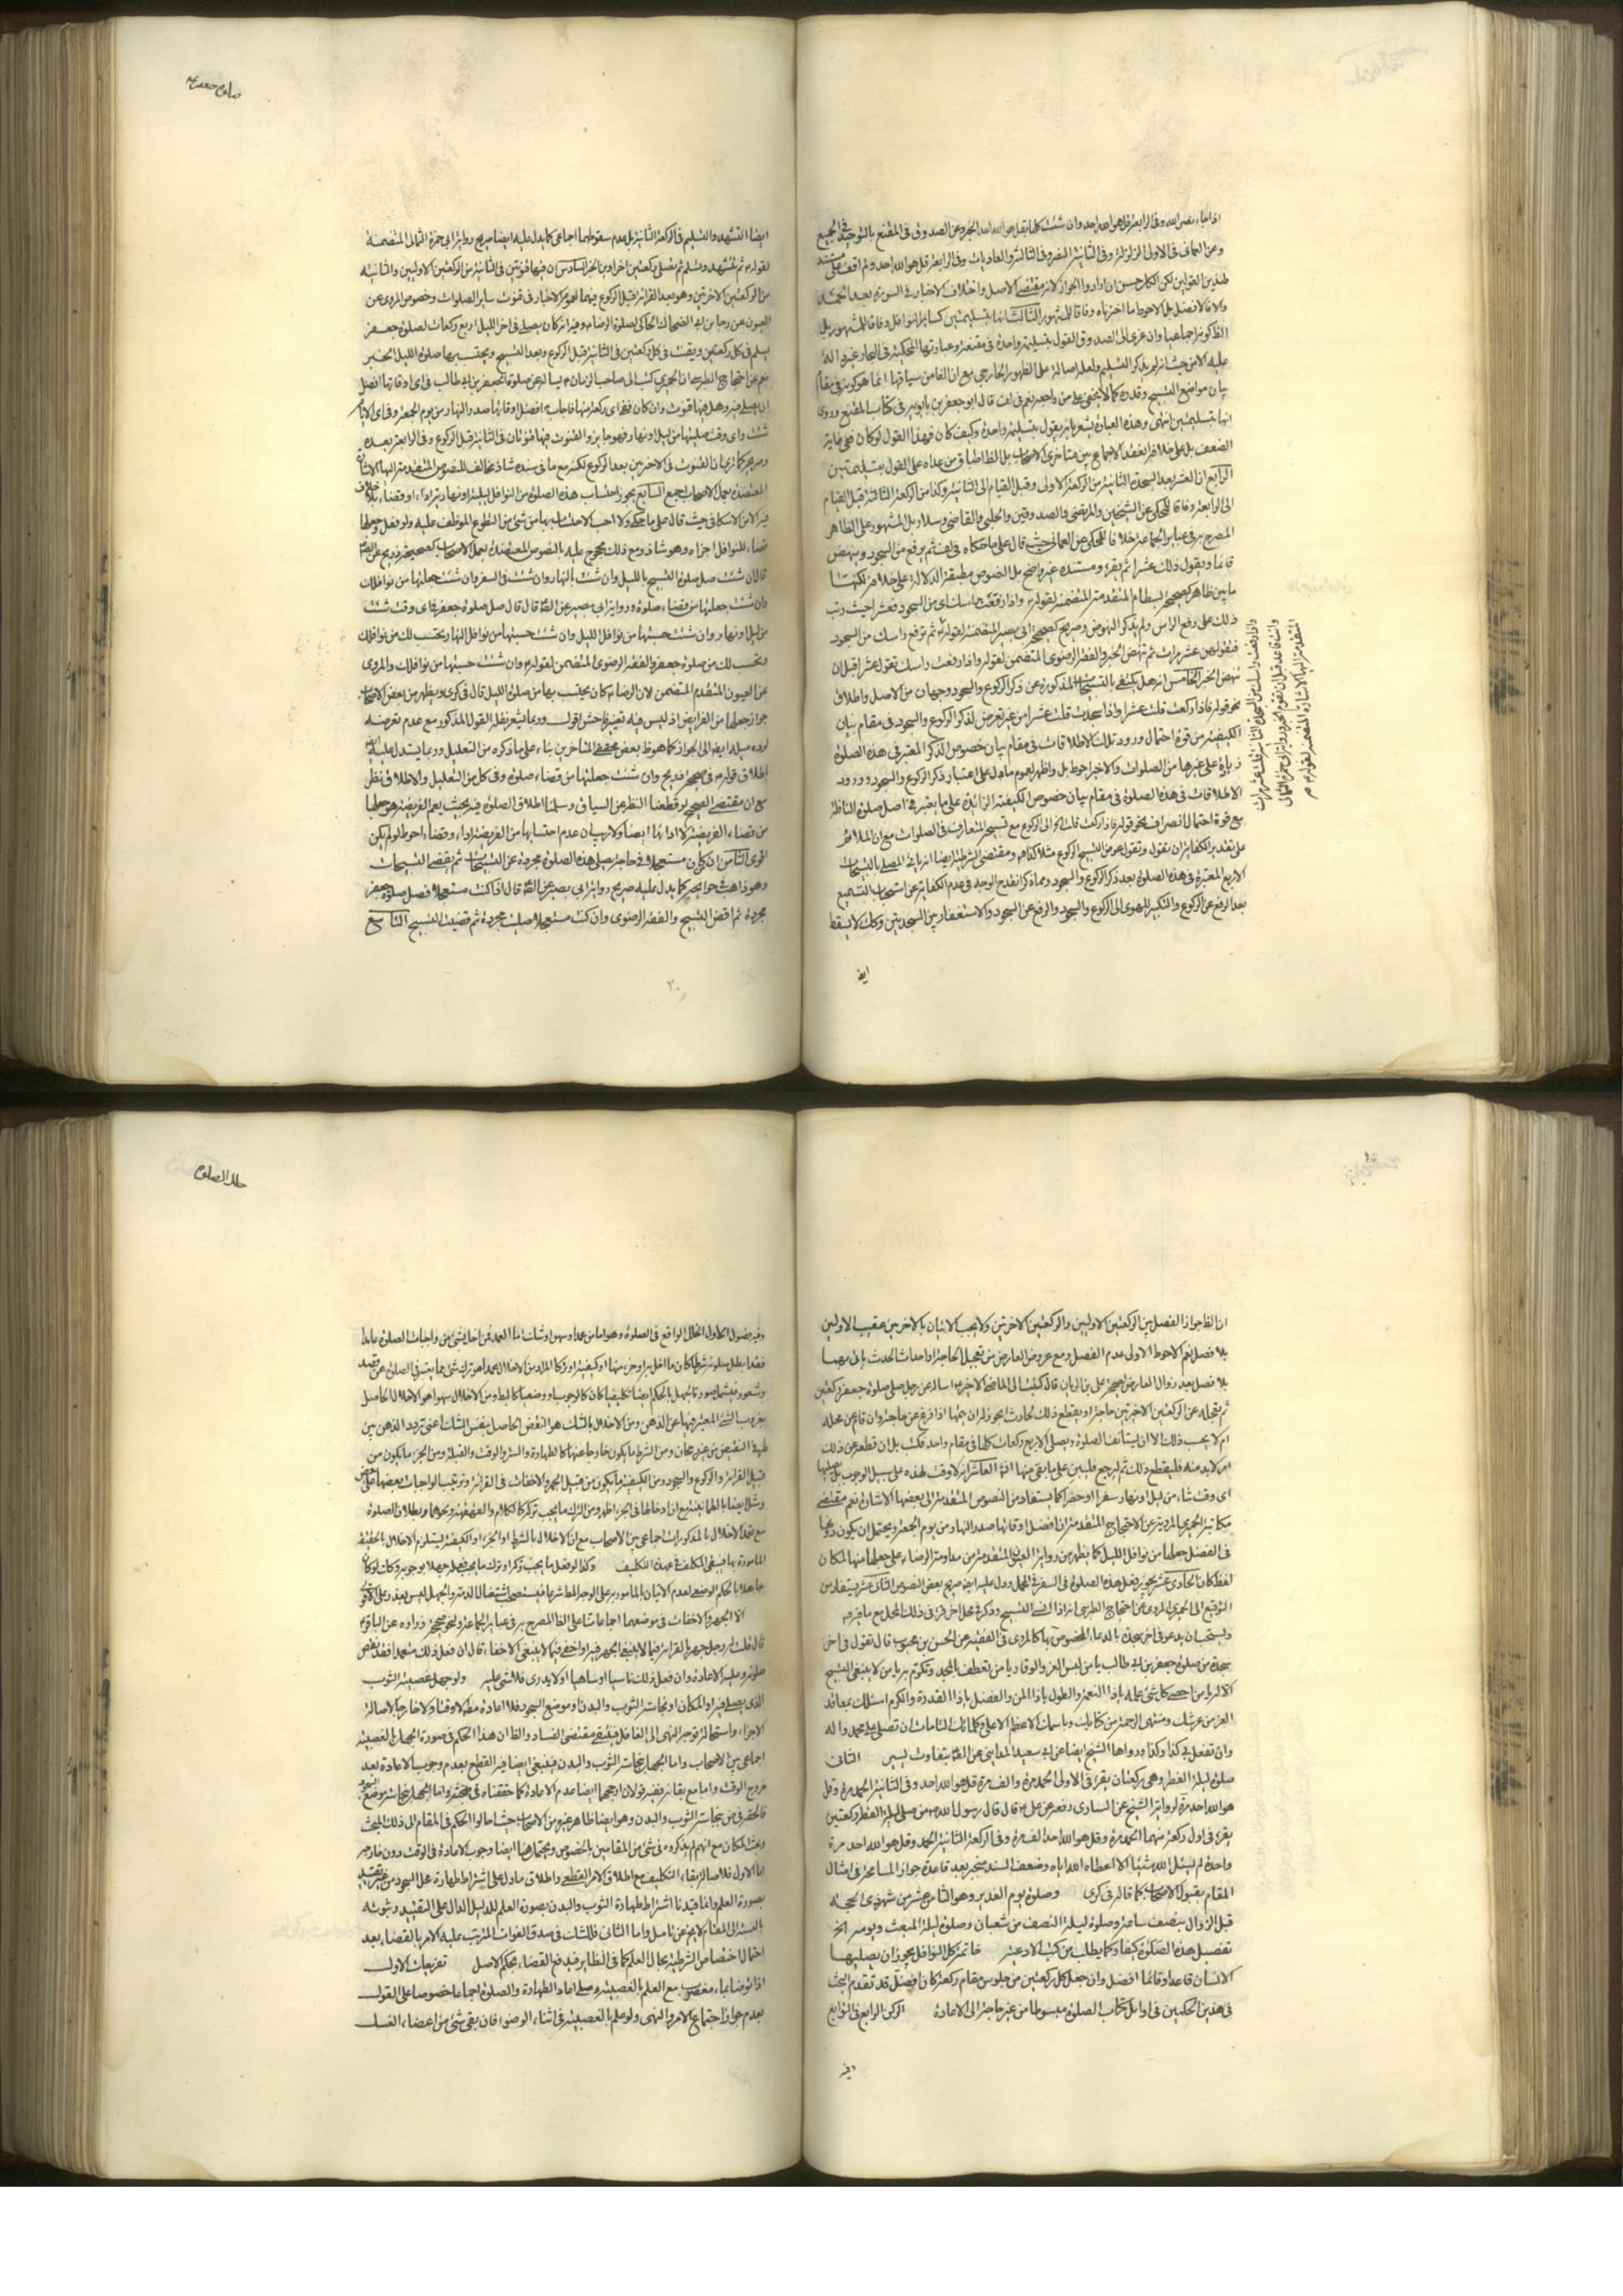 اذا جاء نصر الله وفى الرابعة قل هو الله احد وان شئت كلها بقل هو الله احد الخبر وعن الصدوق فى المقنع بالتوحيد فى الجميع
وعن العمانى فى الاولى الزلزلة وفى الثانية النصر وفى الثالثة والعاديات وفى الرابعة قل هو الله احد ولم اقف على مستند
لهذين القولين لكن الكل حسن ان ارادوا الجواز لانه مقتضى الاصل واختلاف الاخبار فى السورة بعد الحمد
والا فالافضل بل الاحوط ما اخترناه وفاقا للمشهور الثالث انها بتسليمتين كسائر النوافل وفاقا للمشهور بل
الظ كونه اجماعيا وان عزى الى الصدوق القول بتسليمة واحدة فى مقنعه وعبارتها المحكية فى البحار غير دالة
عليه الا من حيث انه لم يذكر التسليم ولعله احاله على الظهور الخارجى مع ان الغا من سياقها انما هو كونه فى مقام
بيان مواضع التسبيح وقدره كما لا يخفى على من راجعه نعم فى لف قال ابو جعفر بن بابويه فى كتاب المقنع وروى
انها بتسليمتين انتهى وهذه العبارة يشعر بانه يقول بتسليمة واحدة وكيف كان فهذا القول لو كان فهى غاية
الضعف بل على خلافه انعقد الاجماع بين متاخرى الاصحاب بل الظ اطباق من عداه على القول بتسليمتين
الرابع ان العشر بعد السجدة الثانية من الركعة الاولى وقبل القيام الى الثانية وكذا من الركعة الثالثة قبل القيام
الى الرابعة وفاقا للمحكى عن الشيخين والمرتضى والصدوقين والحلبى والقاضى وسلار بل المشهور على الظاهر
المصرح به فى عبائر الجماعة خلافا للمحكى عن العمانى حيث قال على ما حكاه فى لف ثم يرفع من السجود وينهض
قائما ويقول ذلك عشرا ثم يقرء ومستنده غير واضح بل النصوص مطبقة الدلالة على خلافه لكنها
ما بين ظاهر كصحيح بسطام المتقدم المتضمن لقوله واذا رفعت راسك اى من السجود فعشرا حيث رتب
ذلك على رفع الراس ولم يذكر النهوض وصريح كصحيح ابى بصير المتضمنة لقوله ثم ترفع راسك من السجود
فتقولهن عشر مرات ثم تنهض الخبر والفقه الرضوى المتضمن لقوله واذا رفعت راسك تقول عشرا قبل ان
تنهض الخبر الخامس انه هل يكتفى بالتسبيحات المذكورة عن ذكر الركوع والسجود وجهان من الاصل واطلاق
نحو قوله فاذا ركعت قلت عشرا واذا سجدت قلت عشرا من غير تعرض لذكر الركوع والسجود فى مقام بيان
الكيفية ومن قوة احتمال ورود تلك الاطلاقات فى مقام بيان خصوص الذكر المعتبر فى هذه الصلوة
زيادة على غيرها من الصلوات والاخير احوط بل واظهر لعموم ما دل على اعتبار ذكر الركوع والسجود وورود
الاطلاقات فى هذه الصلوة فى مقام بيان خصوص الكيفية الزائدة على ما يعتبر فى اصل صلوة النافلة
مع قوة احتمال انصراف نحو قوله فاذا ركعت قلت الخ الى الركوع مع تسبيحه المتعارف فى الصلوات مع ان الملائم
على تقدير الكفاية ان يقول وتقول عوض التسبيح الركوع مثلا كذا فتم ومقتضى الشرطية ايضا اتيان المصلى بالتسبيحات
الاربع المعتبرة فى هذه الصلوة بعد ذكر الركوع والسجود ومما ذكرنا انقدح الوجه فى عدم الكفاية عن استحباب التسميع
بعد الرفع عن الركوع والتكبير للهوى الى الركوع والسجود والرفع عن السجود والاستغفار بين السجدتين وكك لا يسقط
ايض
واذا رفعت راسك من السجدة الثانية قلت عشر مرات
وانت قاعد قبل ان تقوم الخبر ورواية ابى حمزة الثمالى
المتقدمة اليها الاشارة المتضمنة لقوله صم
صلوة جعفر ع
ايضا التشهد والتسليم فى الركعة الثانية بل عدم سقوطهما اجماعى كما يدل عليه ايضا صريح رواية ابى حمزة الثمالى المتضمنة
لقوله ثم تتشهد وتسلم ثم تصلى ركعتين اخراوين الخبر السادس ان فيها قنوتين فى الثانية من الركعتين الاوليين والثانية
من الركعتين الاخرتين وهو بعد القرائة قبل الركوع فيهما لعموم الاخبار فى قنوت سائر الصلوات وخصوص المروى عن
العيون عن رجا بن ابى الضحاك الحاكى لصلوة الرضا ع وفيه انه كان يصلى فى اخر الليل اربع ركعات لصلوة جعفر
يسلم فى كل ركعتين ويقنت فى كل ركعتين فى الثانية قبل الركوع وبعد التسبيح ويحتسب بها صلوة الليل الخبر
نعم عن احتجاج الطبرسى ان الحميرى كتب الى صاحب الزمان ع يساله عن صلوة جعفر بن ابى طالب فى اى اوقاتها افضل
ان يصلى فيه وهل فيها قنوت وان كان ففى اى ركعة منها فاجاب ع افضل اوقاتها صدر النهار من يوم الجمعة وفى اى الايام
شئت واى وقت صليتها من ليل او نهار فهو جايز والقنوت فيها مرتان فى الثانية قبل الركوع وفى الرابعة بعده
وصريحه كما ترى ان القنوت فى الاخرتين بعد الركوع لكنه مع ما فى سنده شاذ مخالف للنصوص المتقدمة اليها الاشارة
المعتضدة بعمل الاصحاب جمع السابع يجوز احتساب هذه الصلوة من النوافل ليلية او نهارية اداء او قضاء بلا خلاف
فيه الا من الاسكافى حيث قال على ما حكى ولا احب الاحتساب بها من شئ من التطوع الموظف عليه ولو فعل وجعلها
قضاء للنوافل اجزاه وهو شاذ ومع ذلك محجوج عليه بالنصوص المعتضدة بعمل الاصحاب كصحيح ذريح عن الصادق
قال ان شئت صل صلوة التسبيح بالليل وان شئت بالنهار وان شئت فى السفر وان شئت جعلتها من نوافلك
وان شئت جعلتها من قضاء صلوة ورواية ابى بصير عن الصادق قال قال صل صلوة جعفر فى اى وقت شئت
من ليل او نهار وان شئت حسبتها من نوافل الليل وان شئت حسبتها من نوافل النهار ويحتسب لك من نوافلك
ويحتسب لك من صلوة جعفر والفقه الرضوى المتضمن لقوله وان شئت حسبتها من نوافلك والمروى
عن العيون المتقدم المتضمن لان الرضا ع كان يحتسب بها من صلوة الليل قال فى كرى ويظهر من بعض الاصحاب
جواز جعلها من الفرايض اذ ليس فيه تغيير فاحش اقول وربما يشعر نقل القول المذكور مع عدم تعرضه
لرده ميله ايض الى الجواز كما هو ظ بعض محققى المتاخرين بناء على ما ذكره من التعليل وربما يستدل عليه
باطلاق قوله فى صحيح ذريح وان شئت جعلتها من قضاء صلوة وفى كل من التعليل والاطلاق نظر
مع ان مقتضى الصحيح لو قطعنا النظر عن السياق وسلمنا اطلاق الصلوة فيه بحيث يعم الفريضة هو جعلها
من قضاء الفريضة لا ادائها ايضا ولا ريب ان عدم احتسابها من الفريضة اداء وقضاء احوط لو لم يكن
اقوى الثامن ان كان مستعجلا او فى حاجة يصلى هذه الصلوة مجردة عن التسبيحات ثم يقضى التسبيحات
وهو ذاهب فى حوائجه كما يدل عليه صريح رواية ابى بصير عن الصادق قال اذا كنت مستعجلا فصل صلوة جعفر
مجردة ثم اقض التسبيح والفقه الرضوى وان كنت مستعجلا صليت مجردة ثم قضيت التسبيح التاسع
ان الظ جواز الفصل بين الركعتين الاوليين والركعتين الاخرتين ولا يجب الاتيان بالاخرتين عقيب الاولين
بلا فصل نعم الاحوط الاولى عدم الفصل ومع عروض العارض من تعجيل الحاجة او احداث الحدث ياتى بهما
بلا فصل بعد زوال العارض لصحيح على بن الريان قال كتبت الى الماضى الاخير ع اساله عن رجل صلى صلوة جعفر ركعتين
ثم تعجله عن الركعتين الاخرتين حاجة او يقطع ذلك لحادث ايجوز له ان يتمها اذا فرغ عن حاجته وان قام عن محله
ام لا يحسب ذلك الا ان يستانف الصلوة ويصلى الاربع ركعات كلها فى مقام واحد فكتب بل ان قطعه عن ذلك
امر لابد منه فليقطع ذلك ثم ليرجع فليبن على ما بقى منها انشاء الله العاشر انه لا وقت لهذه على سبيل الوجوب بل يصليها
اى وقت شاء من ليل او نهار سفرا او حضرا كما يستفاد من النصوص المتقدمة الى بعضها الاشارة نعم مقتضى
مكاتبة الحميرى المروية عن الاحتجاج المتقدمة ان افضل اوقاتها صدر النهار من يوم الجمعة ويحتمل ان يكون دونها
فى الفضل جعلها من نوافل الليل كما يظهر من رواية العيون المتقدمة من مداومة الرضا ع على جعلها منها لمكان
لفظ كان الحادى عشر يجوز فعل هذه الصلوة فى السفر فى المحمل ودل عليه ايض صريح بعض النصوص الثانى عشر يستفاد من
التوقيع الى الحميرى المروى عن احتجاج الطبرسى انه اذا انسى التسبيح وذكره فى محل اخر قرئ فى ذلك المحل مع ما فيه
ويستحب ان يدعو فى اخر سجدة بالدعاء المخصوص بها كالمروى فى الفقيه عن الحسن بن محبوب قال تقول فى اخر
سجدة من صلوة جعفر بن ابى طالب يا من لبس العز والوقار يا من تعطف بالمجد وتكرم به يا من لا ينبغى التسبيح
الا له يا من احصى كل شئ علمه يا ذا النعمة والطول يا ذا المن والفضل يا ذا القدرة والكرم اسئلك بمعاقد
العز من عرشك ومنتهى الرحمة من كتابك وباسمك الاعظم الاعلى وكلماتك التامات ان تصلى على محمد واله
وان تفعل بى كذا وكذا ورواها الشيخ ايضا عن ابى سعيد المداينى عن الصادق بتفاوت يسير الثانى
صلوة ليلة الفطر وهى ركعتان يقرء فى الاولى الحمد مرة والف مرة قل هو الله احد وفى الثانية الحمد مرة وقل
هو الله احد مرة لرواية الشيخ عن السيارى رفعه عن على ع قال قال رسول الله ص من صلى ليلة الفطر ركعتين
يقرء فى اول ركعة منهما الحمد مرة وقل هو الله احد الف مرة وفى الركعة الثانية الحمد وقل هو الله احد مرة
واحدة لم يسئل الله شيئا الا اعطاه الله اياه وضعف السند منجبر بعد قاعدة جواز المسامحة فى امثال
المقام بقبول الاصحاب كما قاله فى كرى وصلوة يوم الغدير وهو الثامن عشر من شهر ذى الحجة
قبل الزوال بنصف ساعة وصلوة ليلة النصف من شعبان وصلوة ليلة المبعث ويومه الخ
تفصيل هذه الصلوة كيفا وكما يطلب من كتب الادعية خاتمة كل النوافل يجوز ان يصليها
الانسان قاعدا وقائما افضل وان جعل كل ركعتين من جلوس مقام ركعة كان افضل قد تقدم البحث
فى هذين الحكمين فى اوايل كتاب الصلوة مبسوطا من غير حاجة الى الاعادة الركن الرابع فى التوابع
وفيه
خلل الصلوة
وفيه فصول الاول الخلل الواقع فى الصلوة وهو اما من عمد او سهو او شك اما العمد فمن اخل بشئ من واجبات الصلوة عامدا
فقد ابطل صلوته شرطا كان ما اخل به او جزء منها او كيفية او تركا المراد من الاخلال العمد هو ترك شئ مما يعتبر فى الصلوة عن قصد
وشعور فيشمل صورة الجهل بالحكم ايضا تكليفيا كان كالوجوب او وضعيا كالبطلان ومن الاخلال سهوا هو الاخلال الحاصل
بعزوب الشئ المعتبر فيها عن الذهن ومن الاخلال بالشك هو النقص الحاصل بنفس الشك اعنى تردد الذهن بين
طرفى النقيض من غير رجحان ومن الشرط ما يكون خارجا عنها كالطهارة والستر والوقت والقبلة ومن الجزء ما يكون من
قبيل القرائة والركوع والسجود ومن الكيفية ما يكون من قبيل الجهر والاخفات فى القرائة وترتيب الواجبات بعضها على بعض
ومثل ايضا بالطمانينة مع ان ادخالها فى الجزء اظهر ومن الترك ما يجب تركه كالكلام والقهقهة ونحوهما وبطلان الصلوة
مع تعمد الاخلال بالمذكورات اجماعى بين الاصحاب مع ان الاخلال بالشرط او الجزء او الكيفية يستلزم الاخلال بالحقيقة
المامورة بها فيبقى المكلف فى عهدة التكليف وكذا لو فعل ما يجب تركه او ترك ما يجب فعله جهلا بوجوبه وكك لو كان
جاهلا بالحكم الوضعى لعدم الاتيان بالمامور به على الوجه المط شرعا فيستصحب اشتغال الذمة والجهل ليس بعذر على الاقوى
الا الجهر والاخفات فى موضعهما اجماعا على الظ المصرح به فى عبائر الجماعة ونحو صحيح زرارة عن الباقر
قال قلت له رجل جهر بالقرائة فيما لا ينبغى الجهر فيه او اخفى فيما لا ينبغى الاخفاء قال ان فعل ذلك متعمدا فقد نقض
صلوته وعليه الاعادة وان فعل ذلك ناسيا او ساهيا او لا يدرى فلا شئ عليه ولو جهل غصبية الثوب
الذى يصلى فيه او المكان او نجاسة الثوب والبدن او موضع السجود فلا اعادة مطلقا لا وقتا ولا خارجا لاصالة
الاجزاء واستحالة توجه النهى الى الغافل فينتفى مقتضى الفساد والظ ان هذا الحكم فى صورة الجهل بالغصبية
اجماعى بين الاصحاب واما الجهل بنجاسة الثوب والبدن فينبغى ايضا فيه القطع بعدم وجوب الاعادة بعد
خروج الوقت واما مع بقائه ففيه قولان ارجحهما ايضا عدم الاعادة كما حققناه فى مبحثه واما الجهل بنجاسة موضع السجود
فالحق فيه من نجاسة الثوب والبدن وهو ايضا ظاهر غيره من الاصحاب حيث احالوا الحكم فى المقام الى ذلك المبحث
وبحث المكان مع انهم لم يذكروه فى شئ من المقامين بالخصوص ويحتمل هنا ايضا وجوب الاعادة فى الوقت دون خارجه
اما الاول فلاصالة بقاء التكليف مع اطلاق الامر القطعى واطلاق ما دل على اشتراط طهارة محل السجود من غير تقييد
بصورة العلم وانما قيدنا اشتراط طهارة الثوب والبدن بصورة العلم للدليل الدال على التقييد وثبوته
بالنسبة الى المقام لا يخ عن تامل واما الثانى فللشك فى صدق الفوات المترتب عليه الامر بالقضاء بعد
احتمال اختصاص الشرطية بحال العلم كما فى النظاير فيدفع القضاء بحكم الاصل تفريعات الاول
اذا توضا بماء مغصوب مع العلم بالغصبية وصلى اعاد الطهارة والصلوة اجماعا خصوصا على القول
بعدم جواز اجتماع الامر والنهى ولو علم بالغصبية فى اثناء الوضوء فان بقى شئ من اعضاء الغسل